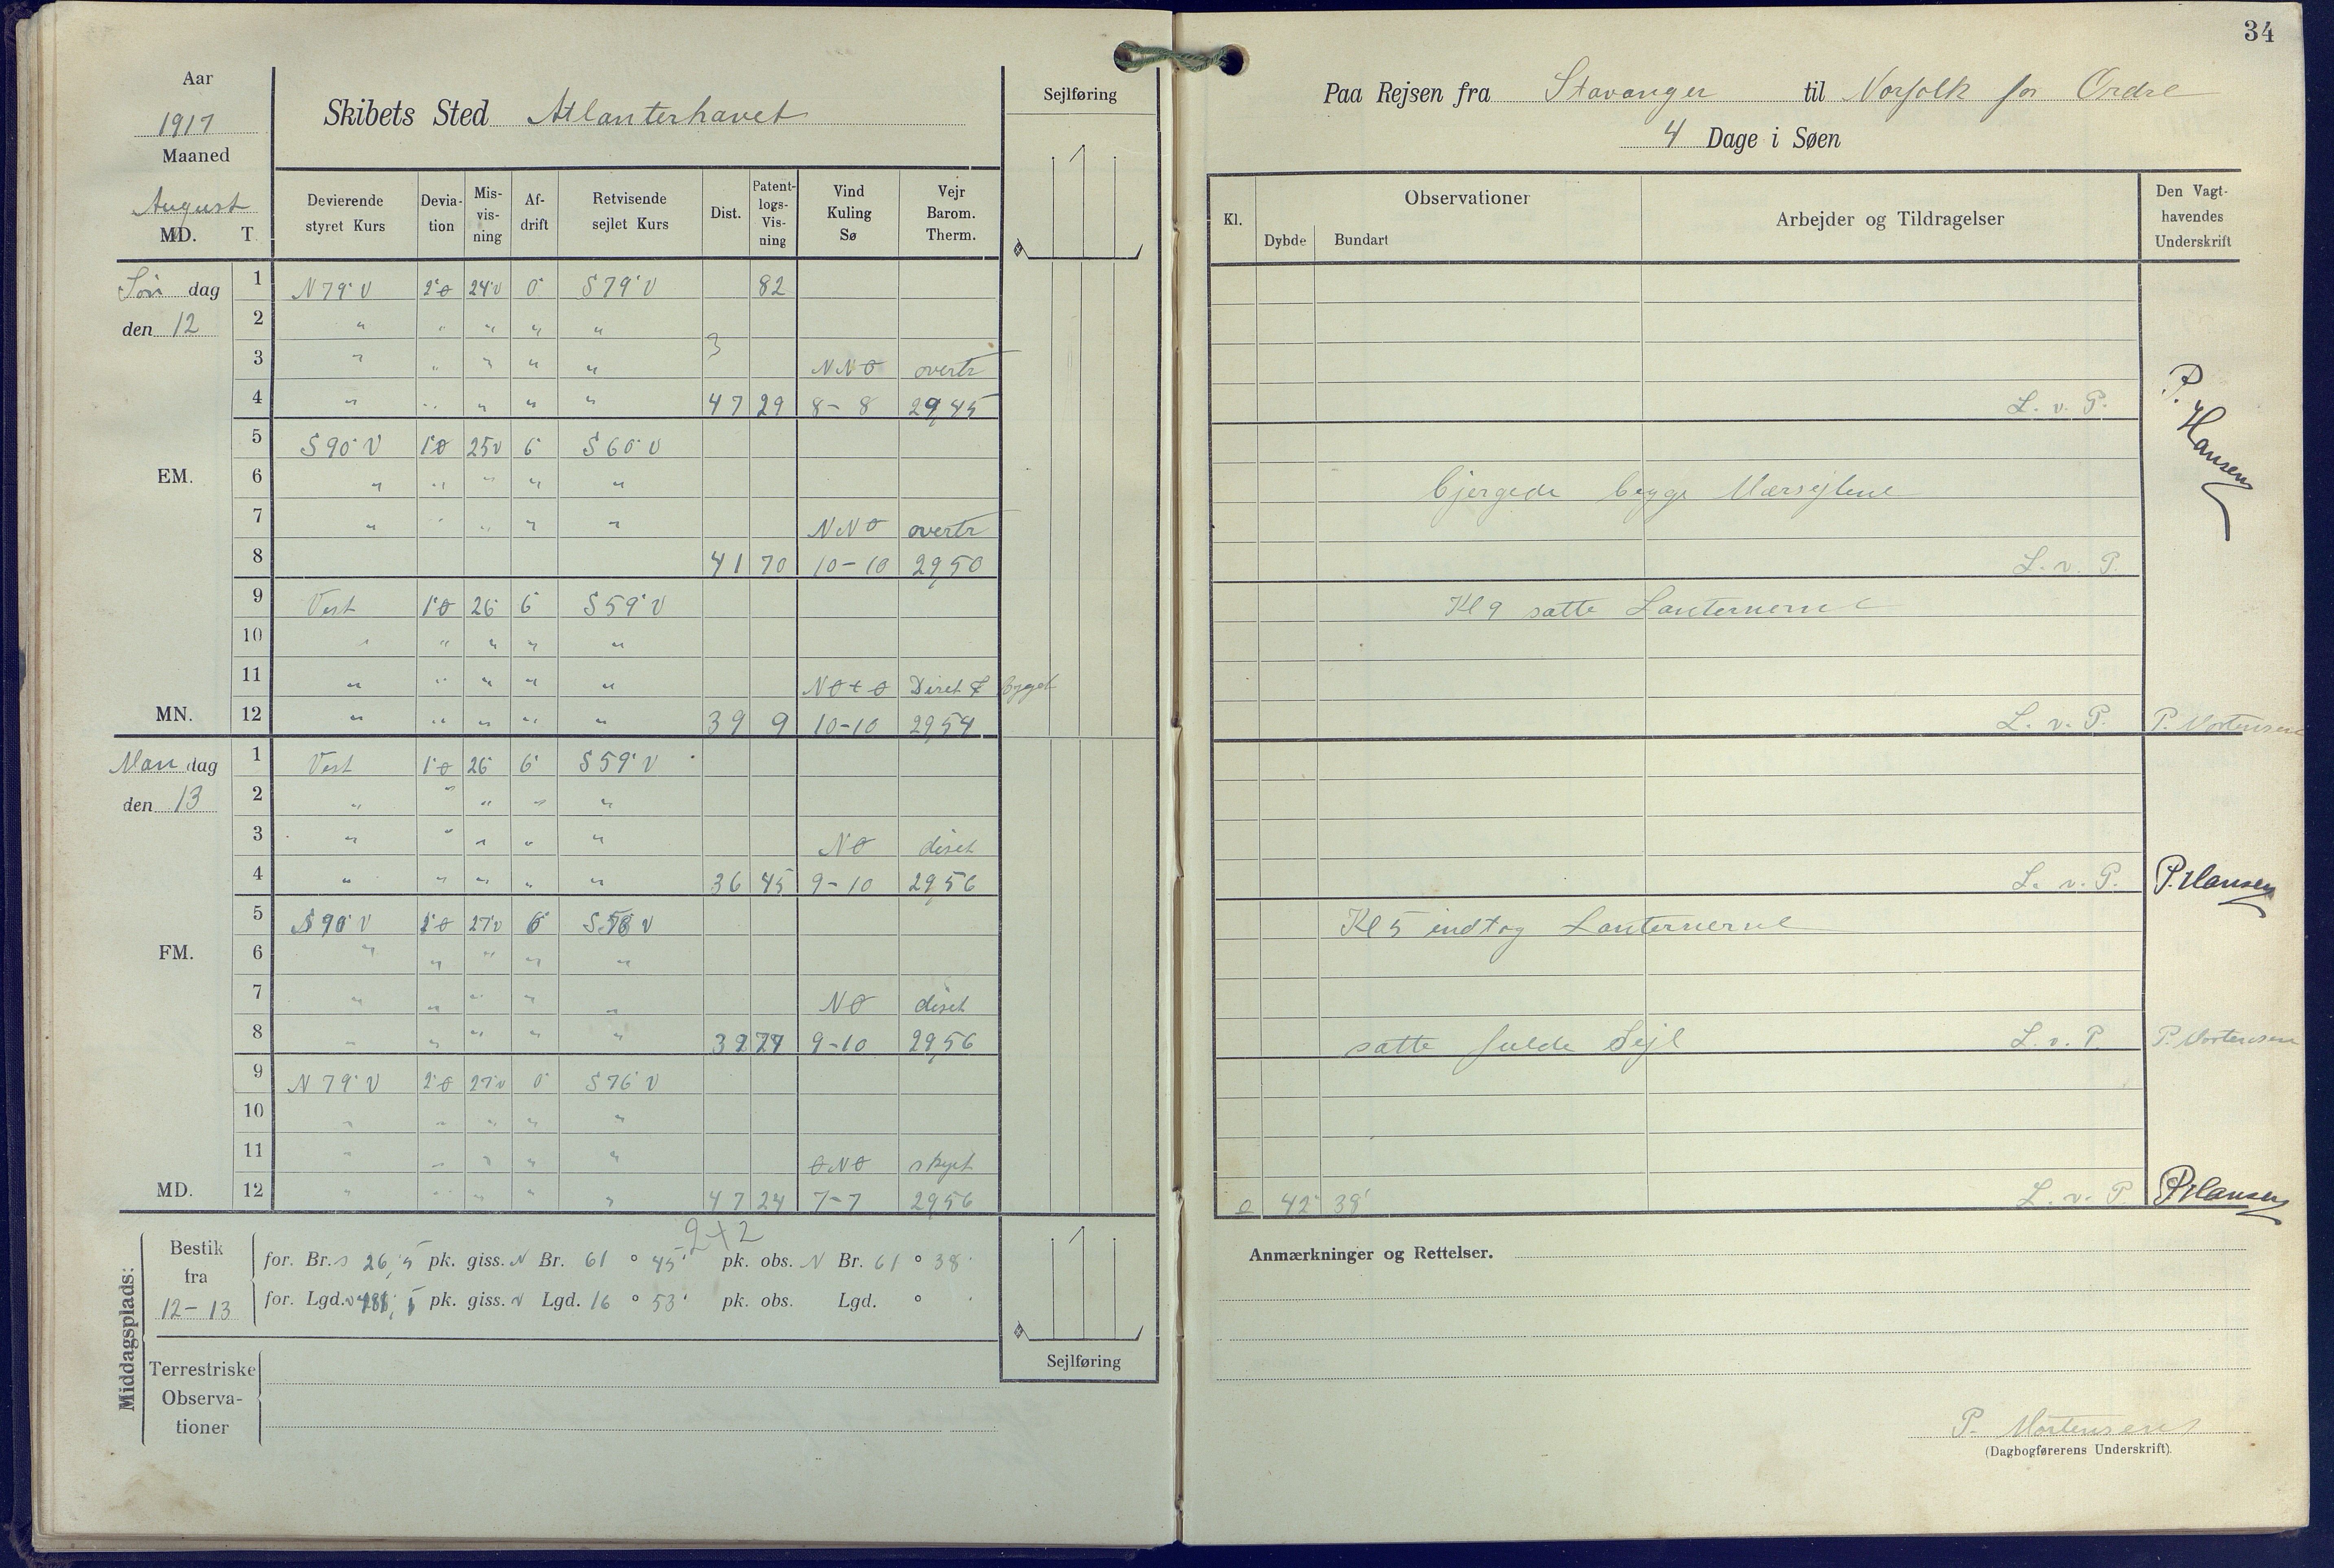 34
Aar
1917
Maaned
August
MD. T.
Skibets Sted Atlanterhavet
Sejlføring
Paa Rejsen fra Stavanger til Norfolk for Ordre
4 Dage i Søen
Devierende styret Kurs | Devia-tion | Mis-vis-ning | Af-drift | Retvisende sejlet Kurs | Dist. | Patent-logs-Vis-ning | Vind Kuling Sø | Vejr Barom. Therm.
Kl. | Observationer | Dybde | Bundart | Arbejder og Tildragelser | Den Vagt-havendes Underskrift
Søn dag 1 N79°V 2°Ø 24°V 0° S79°V 82
den 12 2 " " " " "
3 " " " " " 3 NNØ overtr
4 " " " " " 47 29 8-8 29,45 L. v. P. P. Hansen
5 S90°V 1°Ø 25V 6° S60°V
EM. 6 " " " " " bjergede begge Mærsejlene
7 " " " " " NNØ overtr
8 41 70 10-10 29,50 L. v. P.
9 Vest 1°Ø 26° 6° S59°V Kl 9 satte Lanternerne
10 " " " " "
11 " " " " " NØtØ Diset & byget
MN. 12 " " " " " 39 9 10-10 29,54 L. v. P. P. Mortensen
Man dag 1 Vest 1°Ø 26° 6° S59°V
den 13 2 " " " " "
3 " " " " " NØ diset
4 " " " " " 36 45 9-10 29,56 L. v. P. P. Hansen
5 S90°V 2°Ø 27°V 6° V Kl 5 indtog Lanternerne
FM. 6 " " " " "
7 " " " " " NØ diset
8 " " " " 9-10 29,56 satte fulde Sejl L. v. P. P. Mortensen
9 N79°V 2°Ø 27°V 0° S76°V
10 " " " " "
11 " " " " " ØNØ skyet
MD. 12 " " " " " 47 24 7-7 29,56 42° 38' L. v. P. P. Hansen
242
Middagsplads:
Bestik fra 12-13
for. Br. s 26,5 pk. giss. N Br. 61 ° 45' pk. obs. N Br. 61 ° 38'
for. Lgd. pk. giss. Lgd. 16 ° 53' pk. obs. Lgd. °
Terrestriske Observa-tioner
Sejlføring
Anmærkninger og Rettelser.
P. Mortensen
(Dagbogførerens Underskrift).